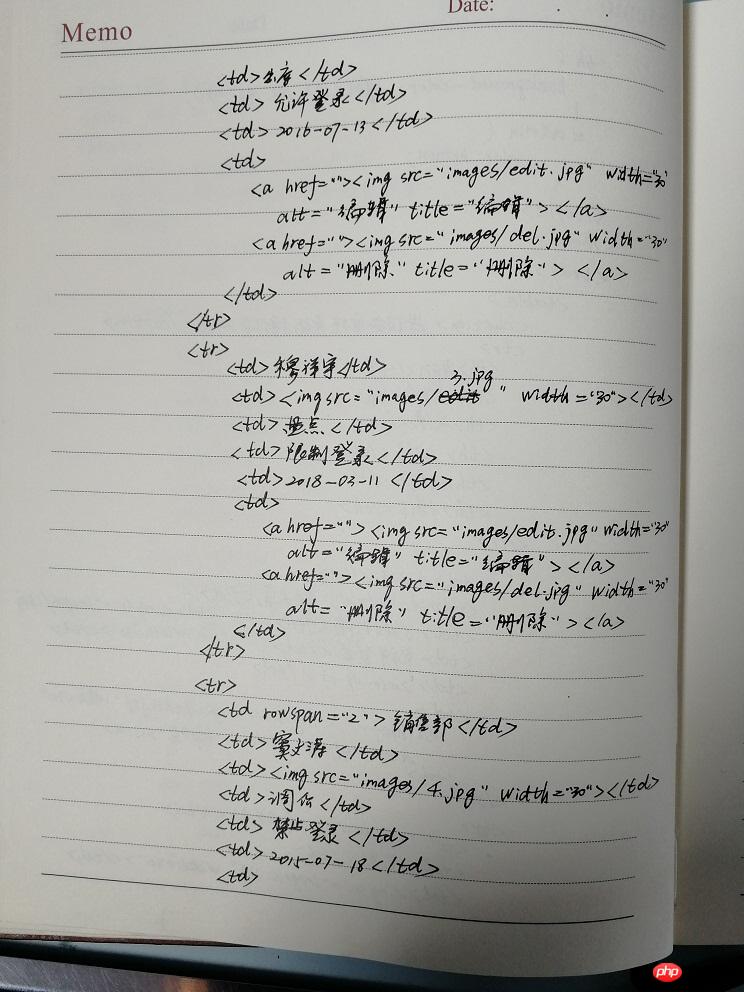 Memo
Date:
<td>出库</td>
<td>允许登录</td>
<td>2016-07-13</td>
<td>
<a href=""><img src="images/edit.jpg" width="30"
alt="编辑" title="编辑"></a>
<a href=""><img src="images/del.jpg" width="30"
alt="删除" title="删除"></a>
</td>
</tr>
<tr>
<td>穆祥宇</td>
<td><img src="images/3.jpg" width="30"></td>
<td>盘点</td>
<td>限制登录</td>
<td>2018-03-11</td>
<td>
<a href=""><img src="images/edit.jpg" width="30"
alt="编辑" title="编辑"></a>
<a href=""><img src="images/del.jpg" width="30"
alt="删除" title="删除"></a>
</td>
</tr>
<tr>
<td rowspan="2">销售部</td>
<td>窦文涛</td>
<td><img src="images/4.jpg" width="30"></td>
<td></td>
<td>禁止登录</td>
<td>2015-07-18</td>
<td>
php